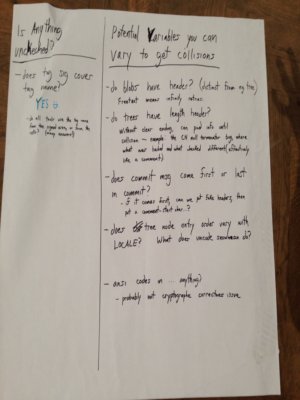 Is Anything
unchecked?
- does tag sig cover
tag name?
YES
- do all tools use the tag name
from the signed area, or from the
refs? (many answers!)
Potential Variables you can
vary to get collisions
- do blobs have header? (distinct from eg tree)
Freetext means infinity retries
- do trees have length header?
without clear ending, can pad info until
collision - example the CN null terminator bug, where
what was hashed and what checked different (effectively
like a comment)
- does commit msg come first or last
in commit?
- if it comes first, can we put fake headers, then
put a comment-start char..?
- does tree node entry order vary with
LOCALE? What does unicode snowman do?
- ansi codes in ... anything?
- probably not cryptographic correctness issue